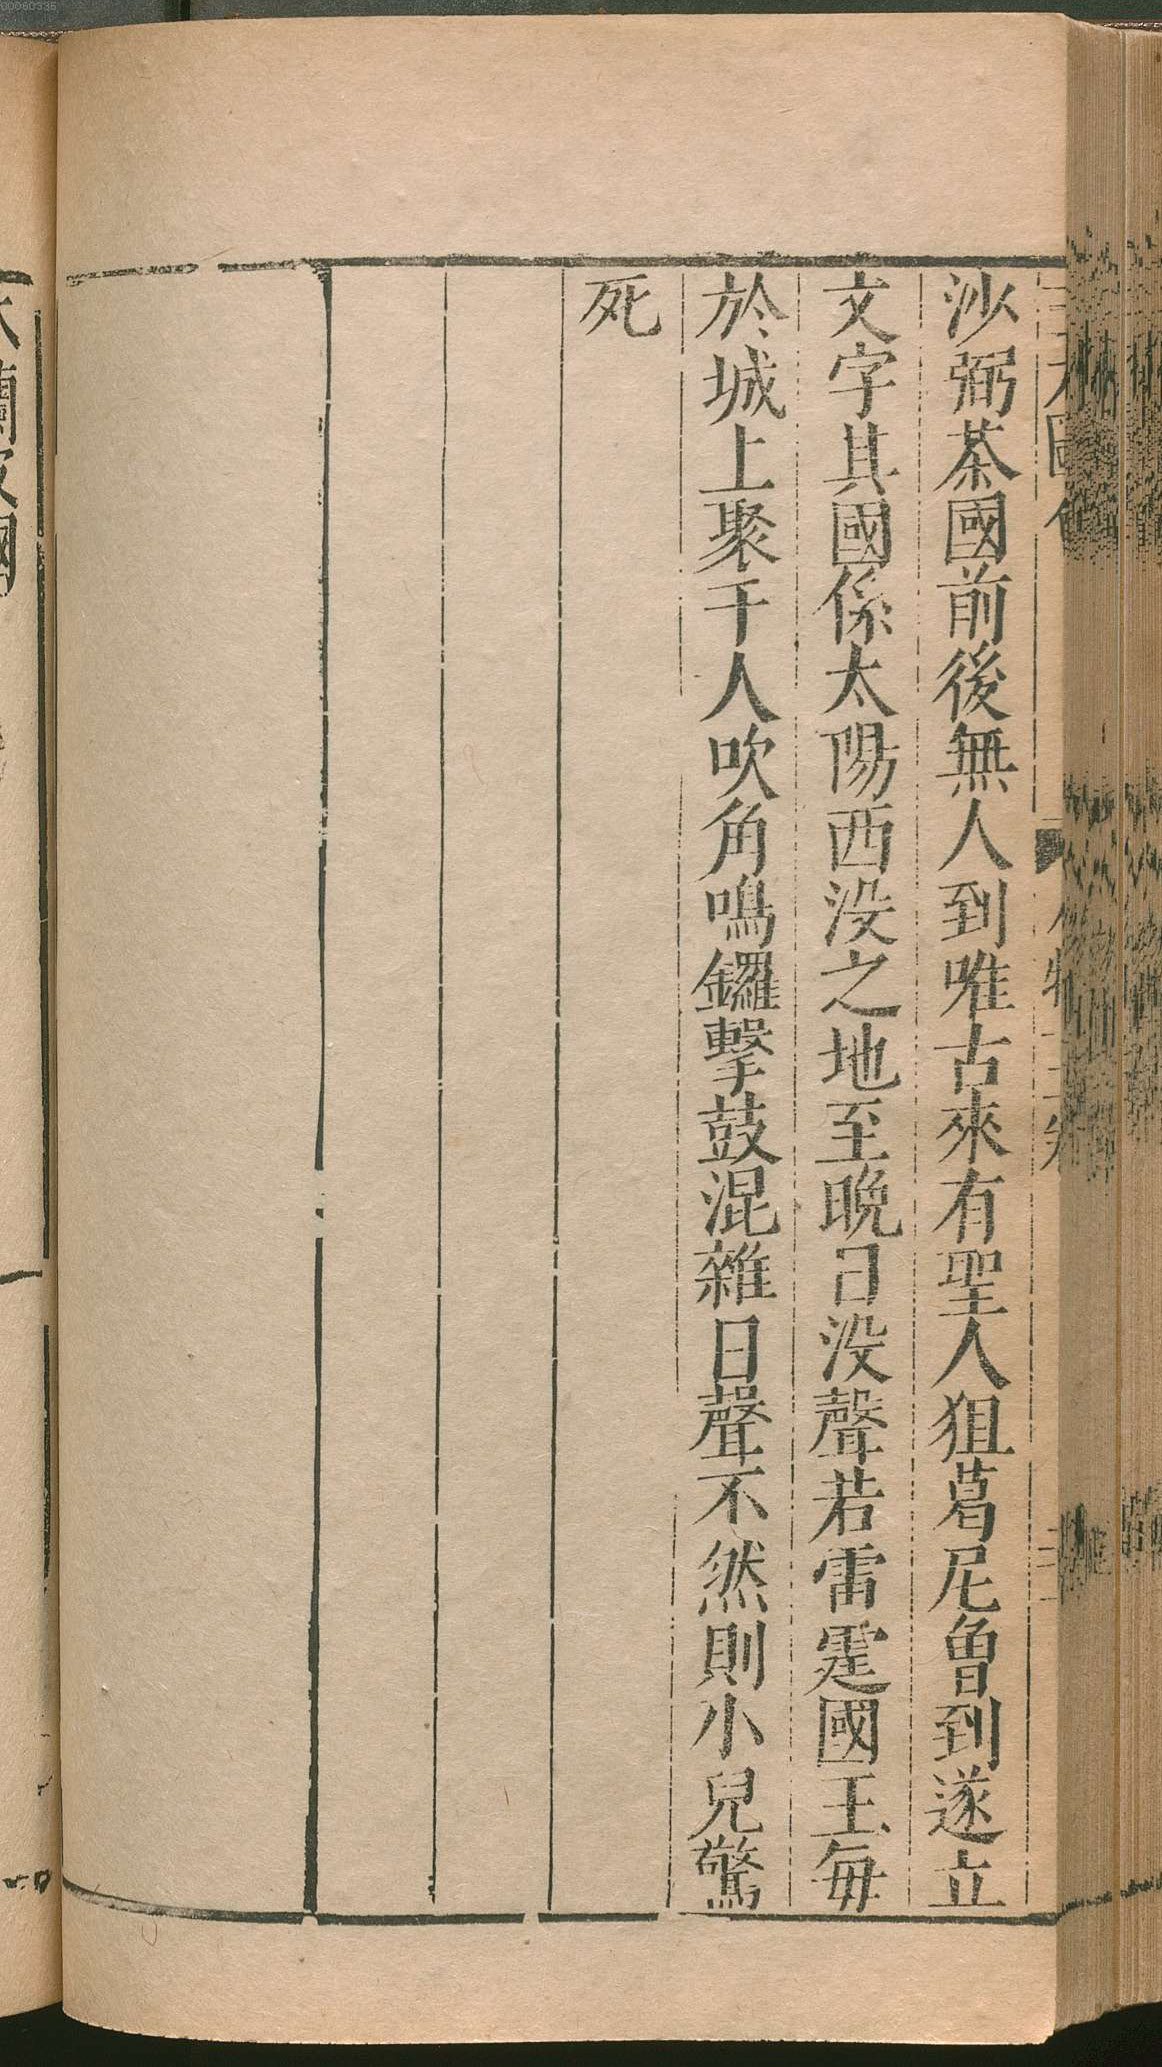 沙弼茶國前後無人到唯古來有聖人狙葛尼魯到遂立
文字其國係太陽西没之地至晚日没聲若雷霆國王每
於城上聚千人吹角鳴鑼擊鼓混雜日聲不然則小兒驚
死
00060335